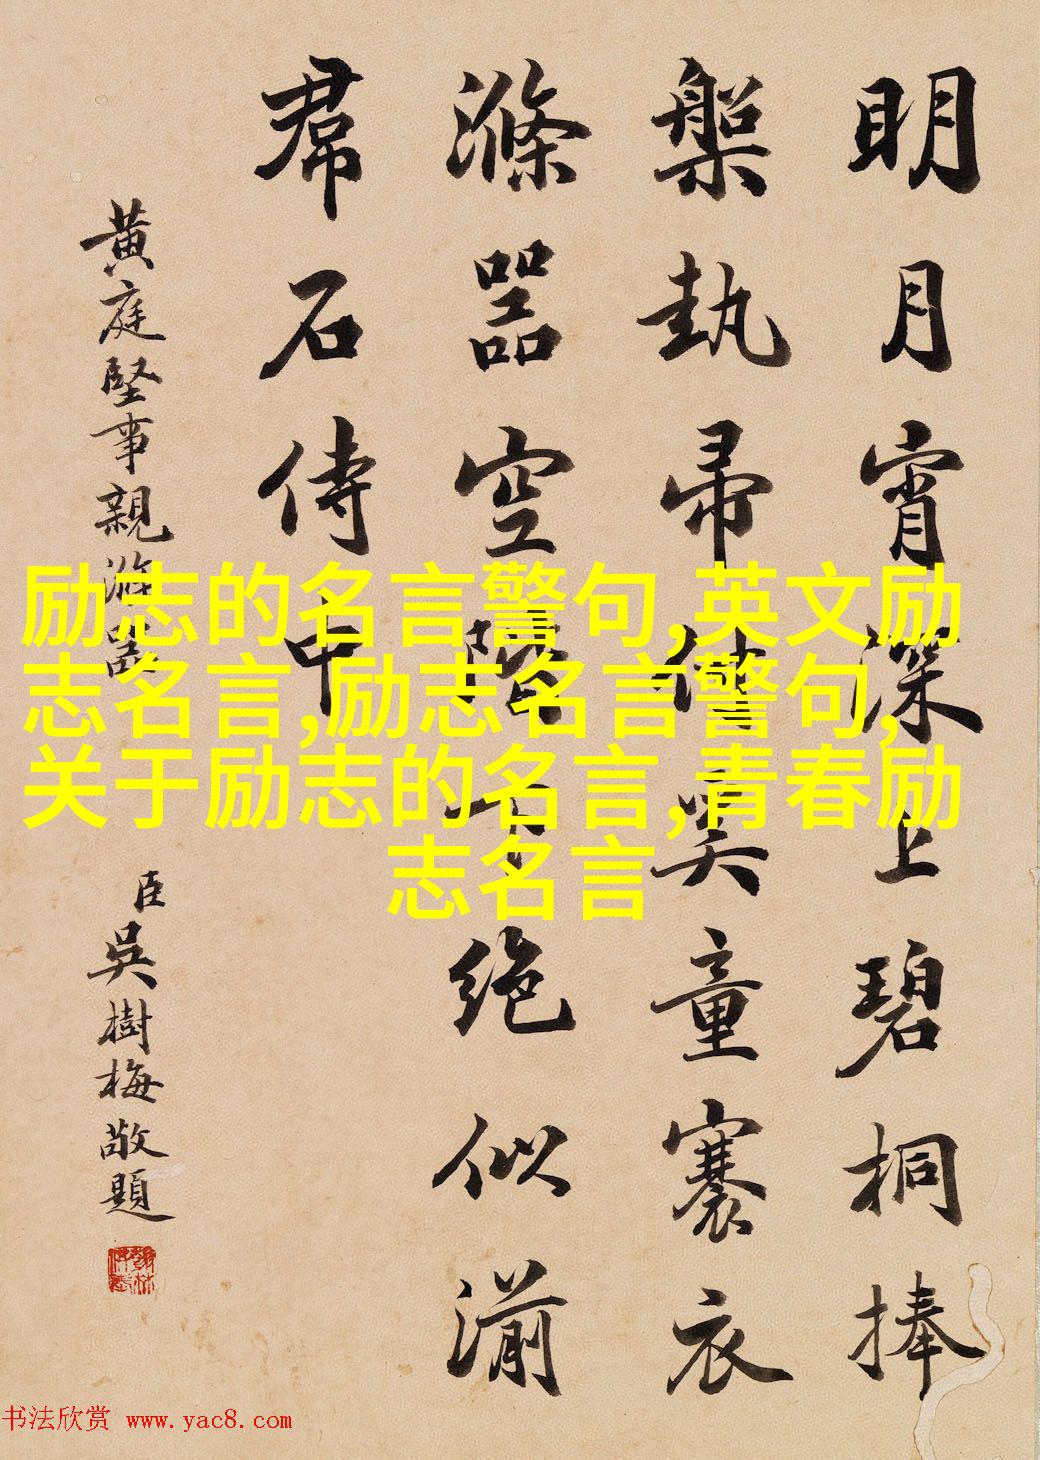 明月宵深上碧桐捧
槃執帚倩奚童褰衣
滌器空階下絕似湔
帬石侍中
黄庭堅事親滌器
臣吳樹梅敬題
励志的名言警句,英文励
志名言,励志名言警句,
关于励志的名言,青春励
志名言
书法欣赏 www.yac8.com